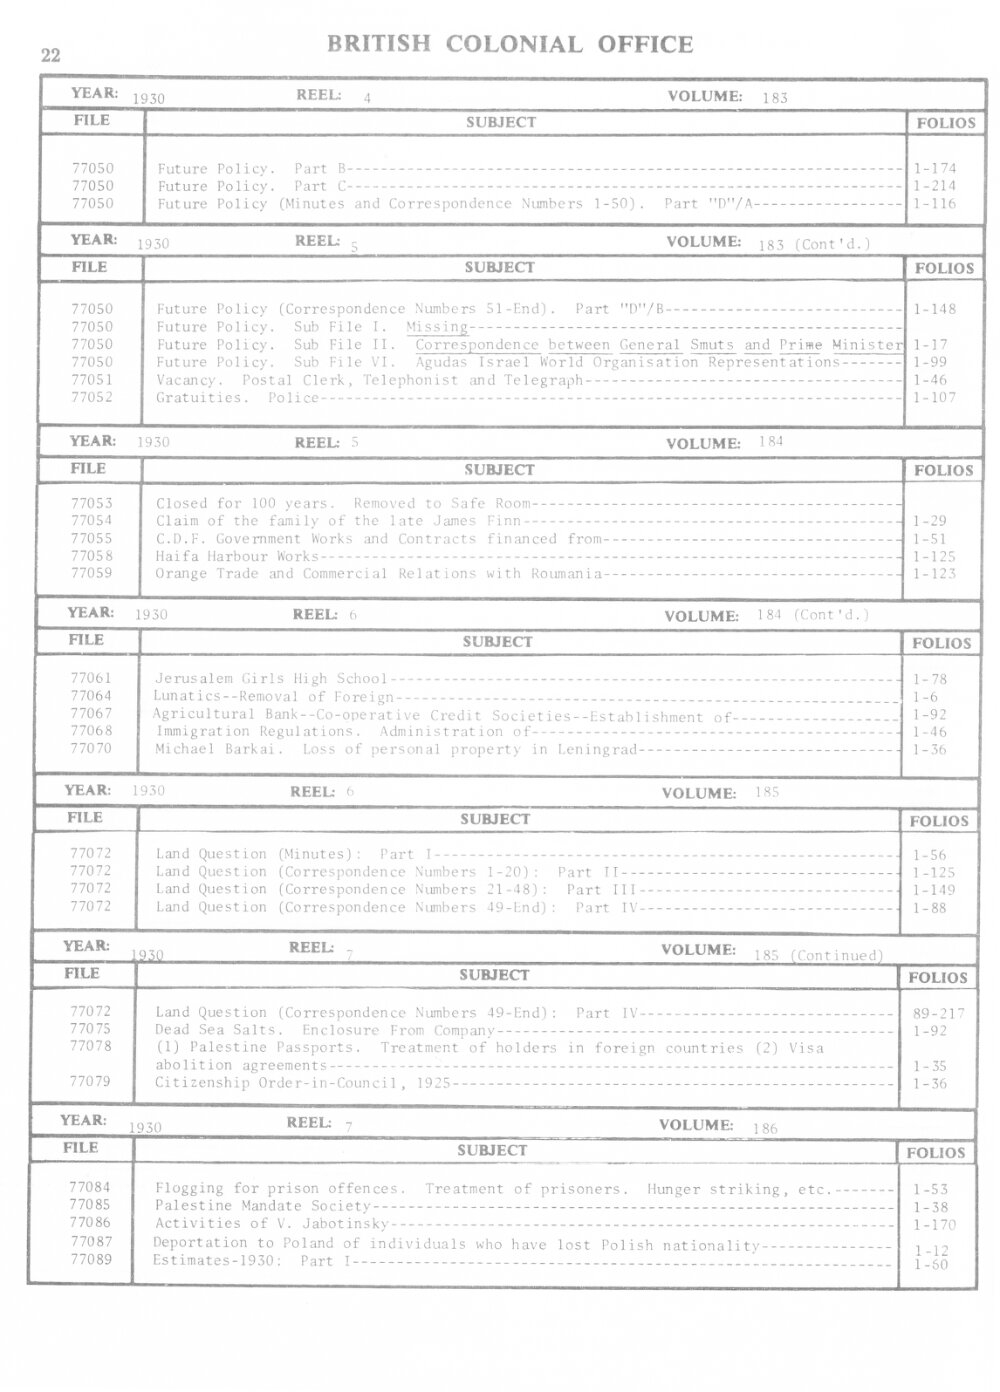 22
BRITISH COLONIAL OFFICE
YEAR: 1930 REEL: 4 VOLUME: 183
FILE SUBJECT FOLIOS
77050 Future Policy. Part B-------- 1-174
77050 Future Policy. Part C-------- 1-214
77050 Future Policy (Minutes and Correspondence Numbers 1-50). Part "D"/A-------- 1-116
YEAR: 1930 REEL: 5 VOLUME: 183 (Cont'd.)
FILE SUBJECT FOLIOS
77050 Future Policy (Correspondence Numbers 51-End). Part "D"/B-------- 1-148
77050 Future Policy. Sub File I. Missing--------
77050 Future Policy. Sub File II. Correspondence between General Smuts and Prime Minister 1-17
77050 Future Policy. Sub File VI. Agudas Israel World Organisation Representations------- 1-99
77051 Vacancy. Postal Clerk, Telephonist and Telegraph-------- 1-46
77052 Gratuities. Police-------- 1-107
YEAR: 1930 REEL: 5 VOLUME: 184
FILE SUBJECT FOLIOS
77053 Closed for 100 years. Removed to Safe Room--------
77054 Claim of the family of the late James Finn-------- 1-29
77055 C.D.F. Government Works and Contracts financed from-------- 1-51
77058 Haifa Harbour Works-------- 1-125
77059 Orange Trade and Commercial Relations with Roumania-------- 1-123
YEAR: 1930 REEL: 6 VOLUME: 184 (Cont'd.)
FILE SUBJECT FOLIOS
77061 Jerusalem Girls High School-------- 1-78
77064 Lunatics--Removal of Foreign-------- 1-6
77067 Agricultural Bank--Co-operative Credit Societies--Establishment of-------- 1-92
77068 Immigration Regulations. Administration of-------- 1-46
77070 Michael Barkai. Loss of personal property in Leningrad-------- 1-36
YEAR: 1930 REEL: 6 VOLUME: 185
FILE SUBJECT FOLIOS
77072 Land Question (Minutes): Part I-------- 1-56
77072 Land Question (Correspondence Numbers 1-20): Part II-------- 1-125
77072 Land Question (Correspondence Numbers 21-48): Part III-------- 1-149
77072 Land Question (Correspondence Numbers 49-End): Part IV-------- 1-88
YEAR: 1930 REEL: 7 VOLUME: 185 (Continued)
FILE SUBJECT FOLIOS
77072 Land Question (Correspondence Numbers 49-End): Part IV-------- 89-217
77075 Dead Sea Salts. Enclosure From Company-------- 1-92
77078 (1) Palestine Passports. Treatment of holders in foreign countries (2) Visa
abolition agreements-------- 1-35
77079 Citizenship Order-in-Council, 1925-------- 1-36
YEAR: 1930 REEL: 7 VOLUME: 186
FILE SUBJECT FOLIOS
77084 Flogging for prison offences. Treatment of prisoners. Hunger striking, etc.------- 1-53
77085 Palestine Mandate Society-------- 1-38
77086 Activities of V. Jabotinsky-------- 1-170
77087 Deportation to Poland of individuals who have lost Polish nationality-------- 1-12
77089 Estimates-1930: Part I-------- 1-50